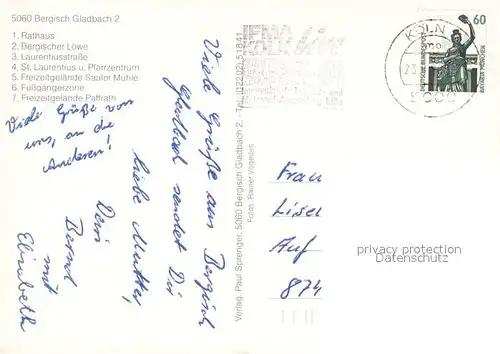 5060 Bergisch Gladbach 2
1. Rathaus
2. Bergischer Löwe
3. Laurentiusstraße
4. St. Laurentius u. Pfarrzentrum
5. Freizeitgelände Saaler Mühle
6. Fußgängerzone
7. Freizeitgelände Paffrath
Viele Grüße von
uns, an die
Anderen!
Viele Grüße aus Bergisch
Gladbach sendet Dir
liebe Mutter,
Dein
Bernd
mit
Elisabeth
Verlag: Paul Sprenger, 5060 Bergisch Gladbach 2. - Tel. (02202) 51841
Fotos: Rainer
IFMA
KÖLN
KÖLN
5000
60
DEUTSCHE BUNDESPOST
BAVARIA MÜNCHEN
Frau
Lisel
Auf
874
privacy protection
Datenschutz